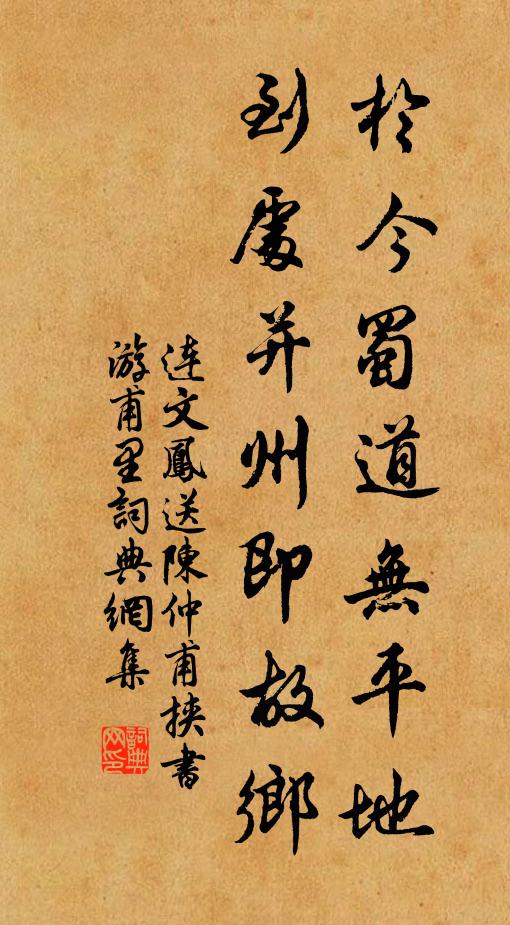 於今蜀道無平地
到處并州即故鄉
連文鳳送陳仲甫挾書
游甫里詞典網集
詞典
网印